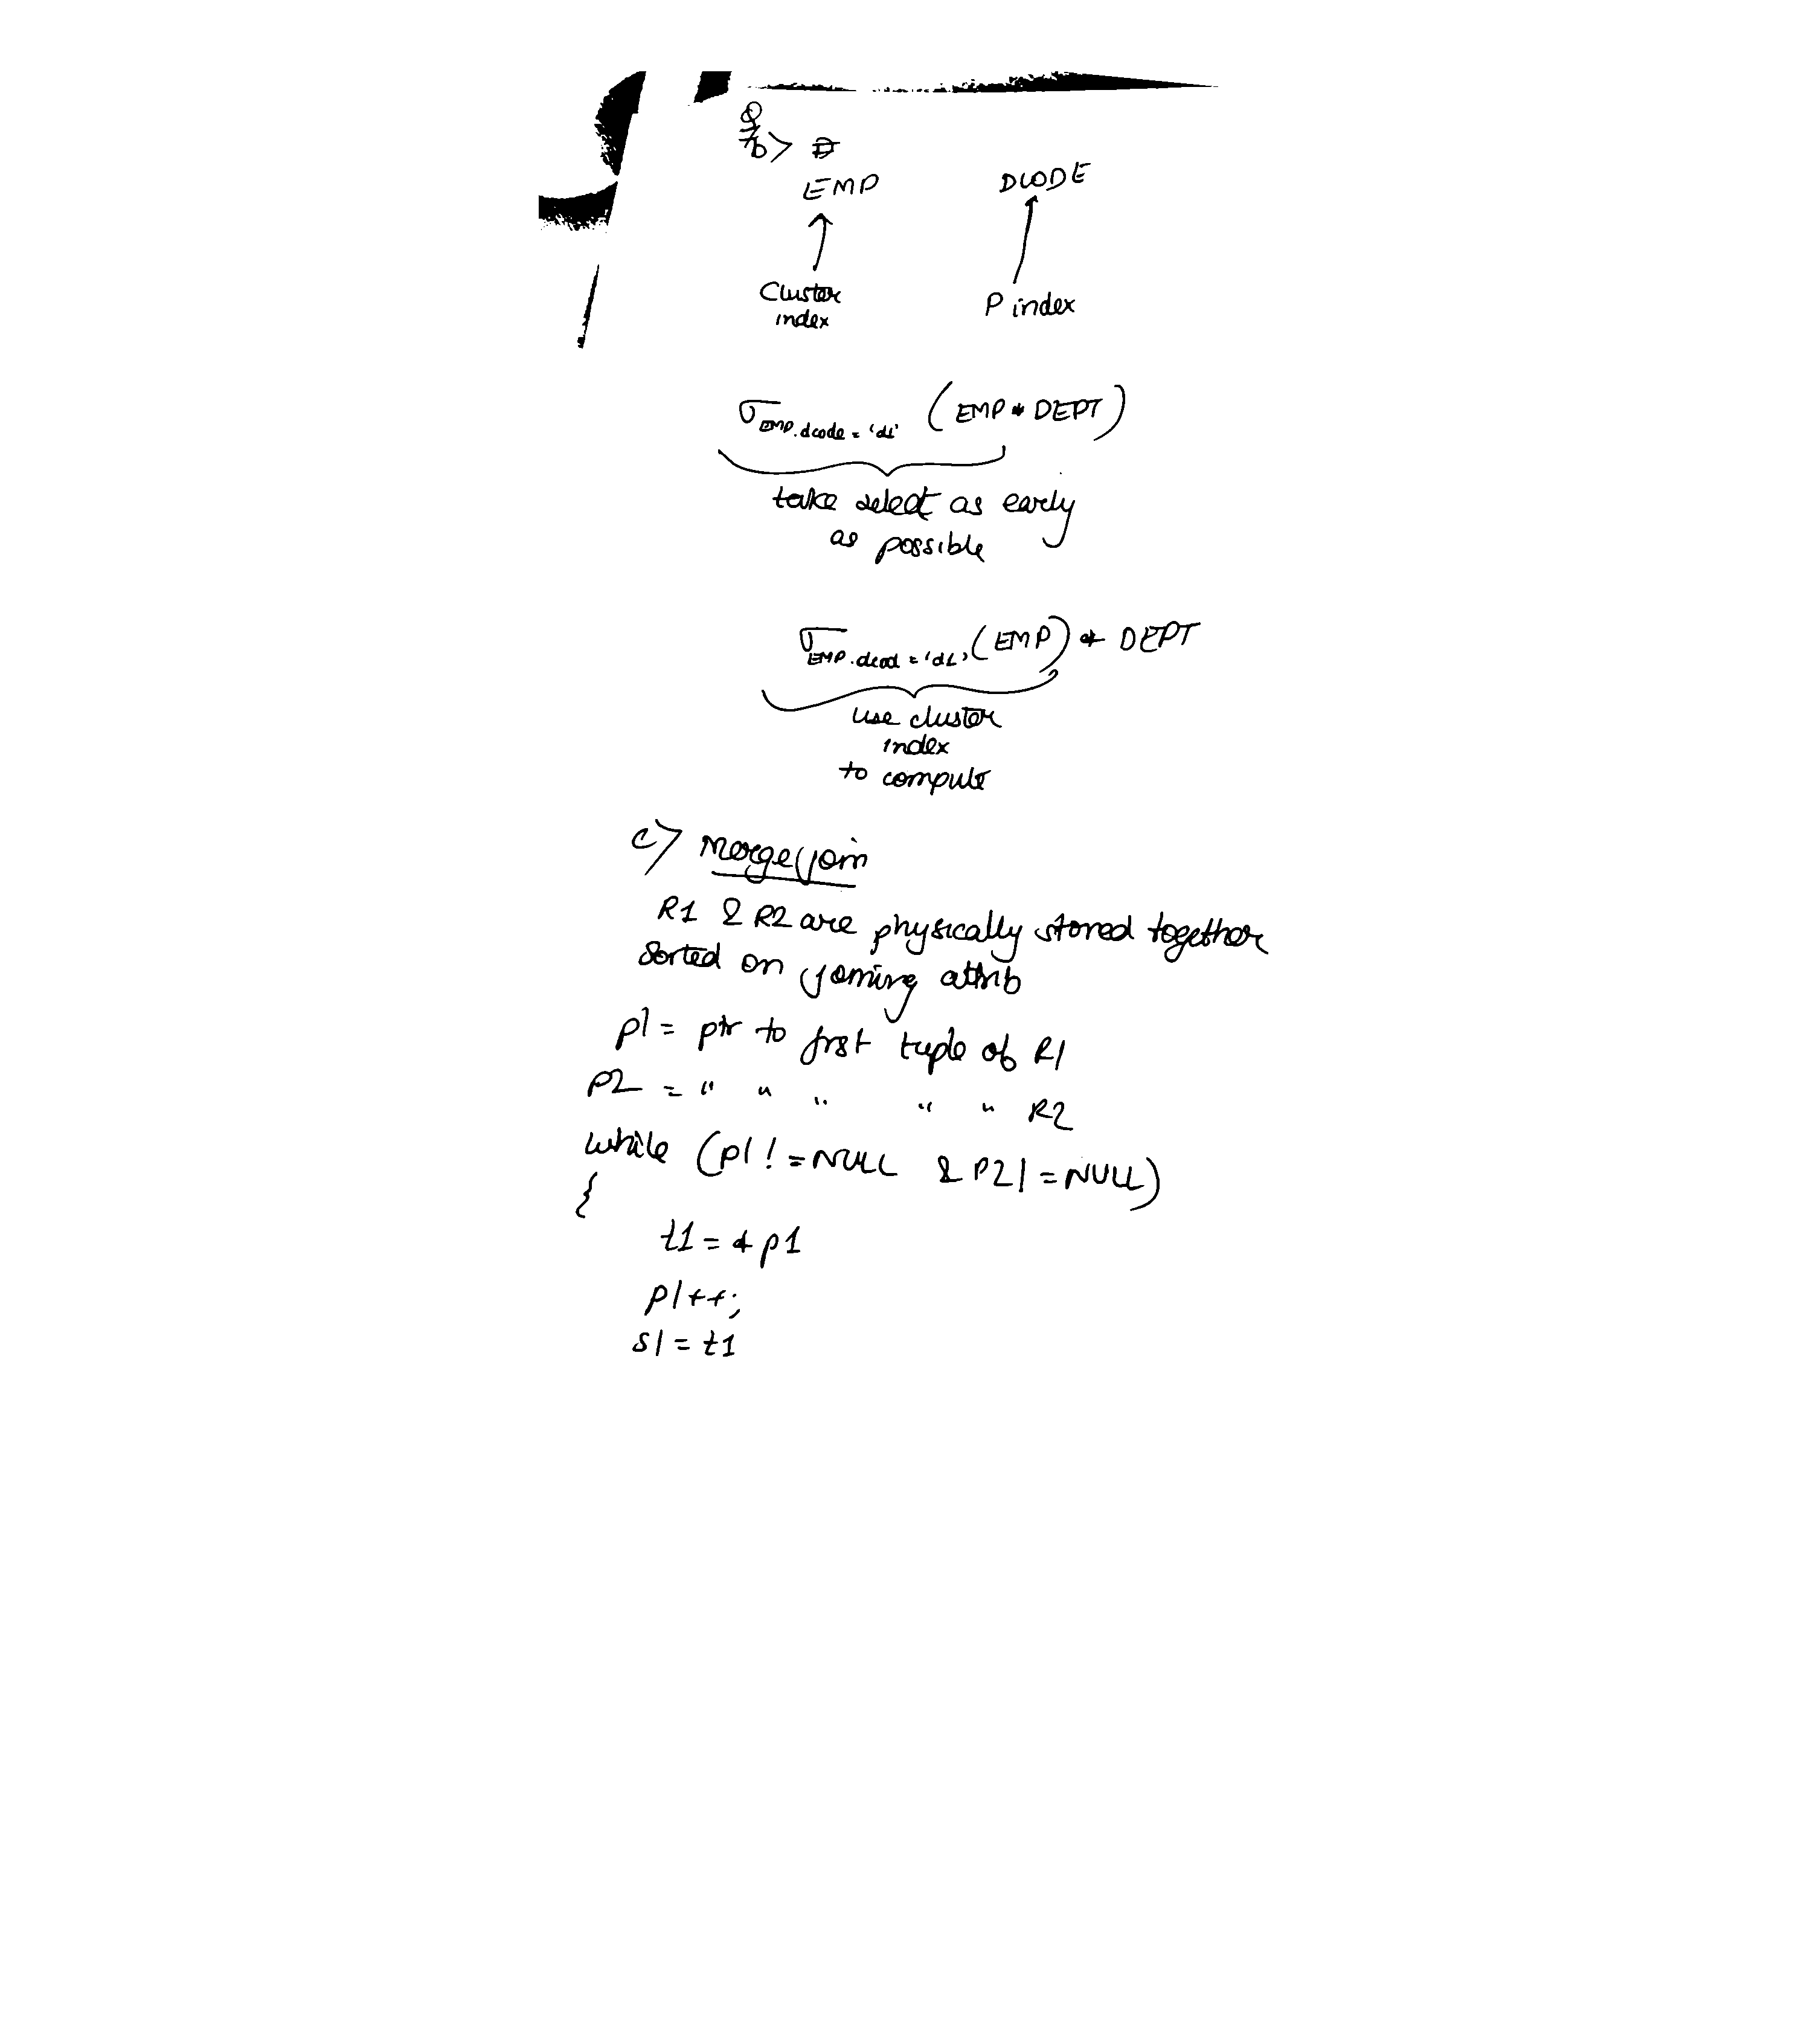 b>
EMP DCODE
Cluster index P index
σ EMP.dcode = 'd1' (EMP * DEPT)
take select as early
as possible
σ EMP.dcod = 'd1' (EMP) * DEPT
use cluster
index
to compute
c> Merge join
R1 & R2 are physically stored together
Sorted on joining attrib
p1 = ptr to first tuple of R1
P2 = " " " " " R2
while (p1 != NULL & P2 != NULL)
{
t1 = * p1
p1++;
s1 = t1